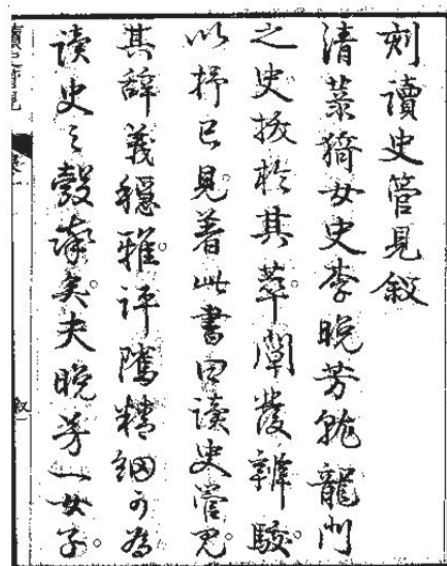 刻讀史管見敘
清菉猗女史李晚芳就龍門
之史拔於其萃。闡發辨駁。
以抒己見。著此書曰讀史管見。
其辭義穩雅。評隲精細。可為
读史之彀率矣。夫晚芳一女子。
讀史管見
敘